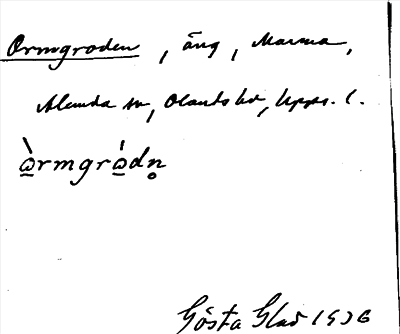 Ormgroden, äng, Marma,
Älmunda sn, Olands hd, Upps. l.
ὼ̲rmgrώ̲dn̥
Gösta Glad 1936